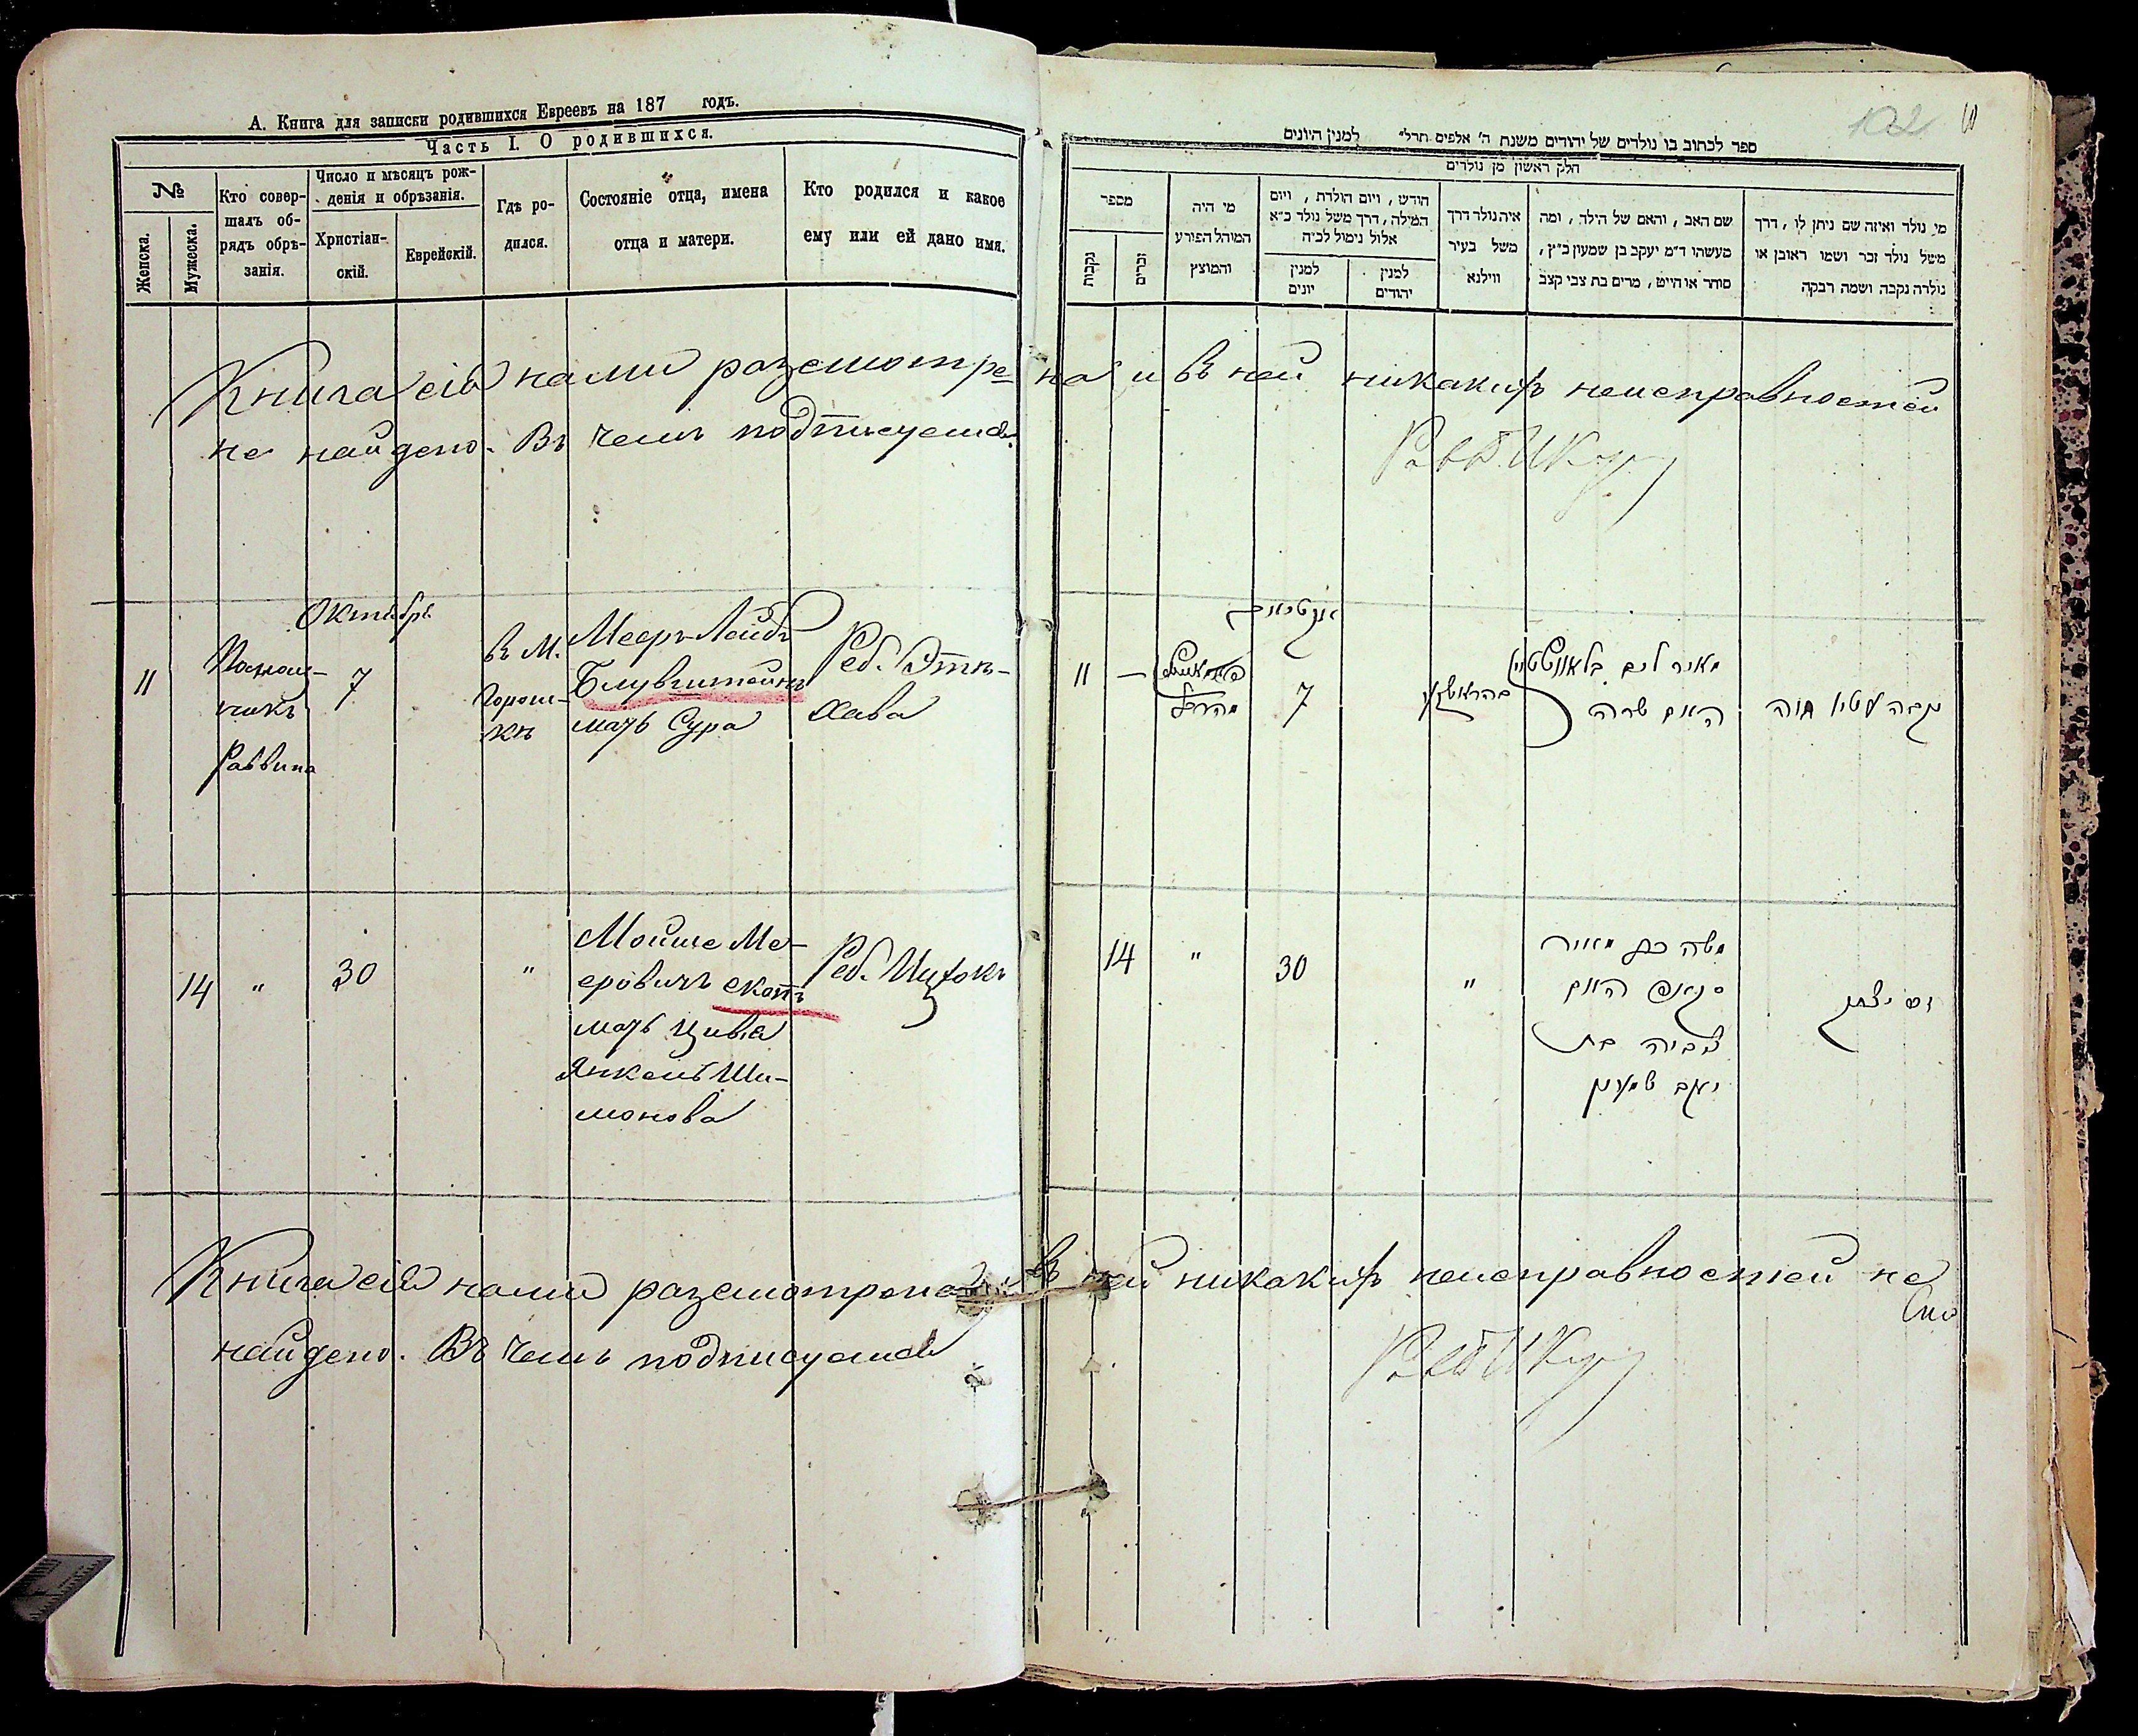 А. Книга для записки родившихся Евреевъ на 187 годъ.
Часть I. О родившихся.
№
Женска.
Мужеска.
Кто совер-
шалъ об-
рядъ обрѣ-
занія.
Число и мѣсяцъ рож-
денія и обрѣзанія.
Христіан-
скій.
Еврейскій.
Гдѣ ро-
дился.
Состояніе отца, имена
отца и матери.
Кто родился и какое
ему или ей дано имя.
Книга сія нами разсмотре-
не найдено. Въ чемъ подписуемся
Октябрь
11
Помош-
никъ
Раввина
7
въ М.
Горош-
кѣ
Мееръ Лейбъ
Блувштейнъ
мать Сура
Реб. Этя-
Хава
14
"
30
"
Мойше Ме-
еровичъ скотъ
мать Цивія
Янкель Ши-
монова
Реб. Ицхокъ
Книга сія нами разсмотрена и въ
найдено. Въ чемъ подписуемся
102
ספר לכתוב בו נולדים של יהודים משנת ה' אלפים תרל" למנין היונים
חלק ראשון מן נולדים
מספר
נקבות
זכרים
מי היה
המוהל הפורע
והמוצץ
חודש, ויום הולדת, ויום
המילה, דרך משל נולד כ"א
אלול נימול לכ"ה
למנין
יונים
למנין
יהודים
איה נולד דרך
משל בעיר
ווילנא
שם האב, והאם של הילד, ומה
מעשהו ד"מ יעקב בן שמעון כ"ץ,
סוחר או חייט, מרים בת צבי קצב
מי נולד ואיזה שם ניתן לו, דרך
משל נולד זכר ושמו ראובן או
נולדה נקבה ושמה רבקה
на и въ ней никакихъ неисправностей
11
—
7
מאיר ליב בלאוושטיין
האם שרה
נקבה עטיא חוה
14
"
30
"
משה בן מאיר
האם
צביה בת
יעקב שמעון
יצחק
ней никакихъ неисправностей не